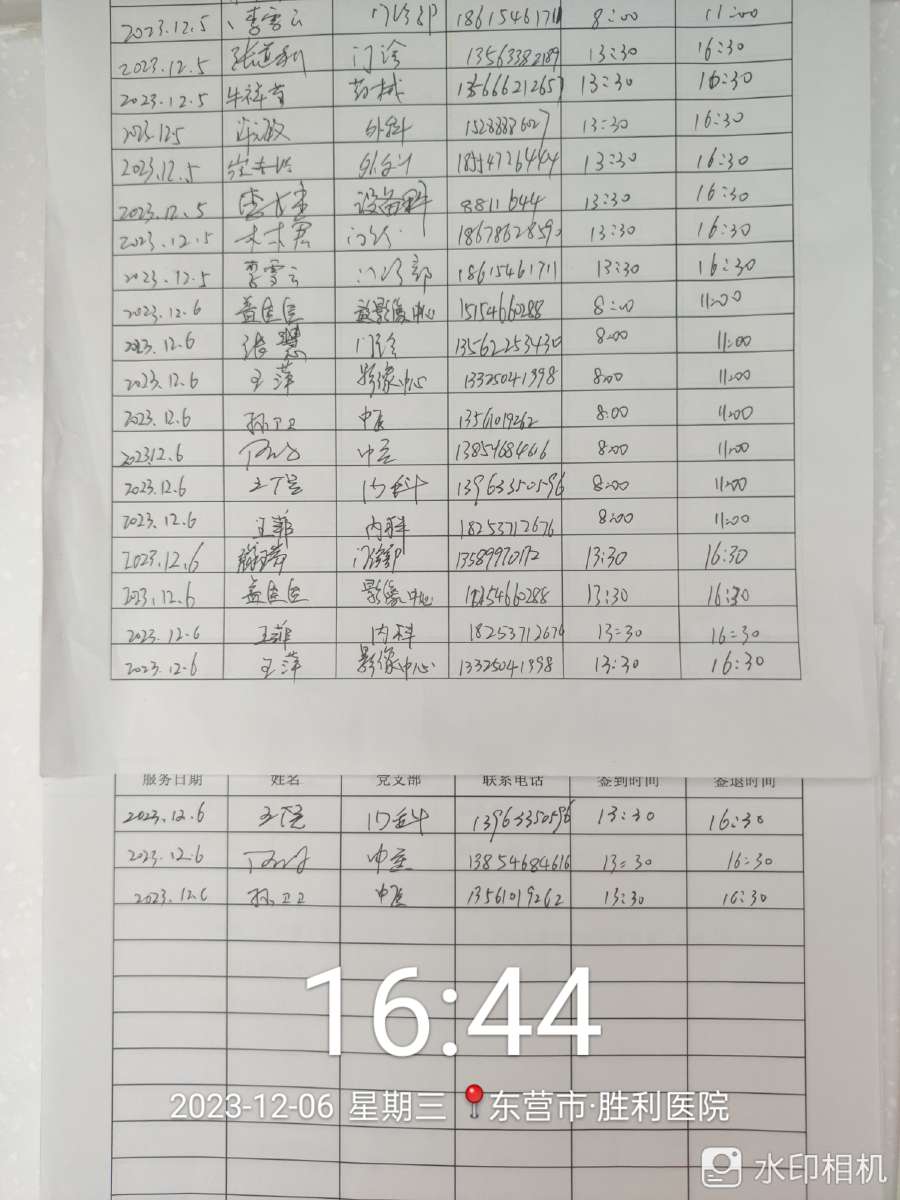 2023.12.5 李雪云 门诊部 18615461711 8:00 11:00
2023.12.5 门诊 13563382189 13:30 16:30
2023.12.5 药械 13:30 16:30
2023.12.5 外科 13:30 16:30
2023.12.5 18554726444 13:30 16:30
2023.12.5 设备科 8811644 13:30 16:30
2023.12.5 门诊 18678628590 13:30 16:30
2023.12.5 李雪云 门诊部 18615461711 13:30 16:30
2023.12.6 盖臣臣 影像中心 15154660288 8:00 11:00
2023.12.6 张慧 门诊 13562253430 8:00 11:00
2023.12.6 王萍 影像中心 13325041998 8:00 11:00
2023.12.6 孙卫卫 中医 13561019262 8:00 11:00
2023.12.6 中医 13854684616 8:00 11:00
2023.12.6 内科 13963350596 8:00 11:00
2023.12.6 王菲 内科 18253712676 8:00 11:00
2023.12.6 门诊部 13:30 16:30
2023.12.6 盖臣臣 影像中心 13:30 16:30
2023.12.6 王菲 内科 18253712676 13:30 16:30
2023.12.6 王萍 影像中心 13325041998 13:30 16:30
服务日期 姓名 党支部 联系电话 签到时间 签退时间
2023.12.6 内科 13963350596 13:30 16:30
2023.12.6 中医 13854684616 13:30 16:30
2023.12.6 孙卫卫 中医 13561019262 13:30 16:30
16:44
2023-12-06 星期三 东营市·胜利医院
水印相机